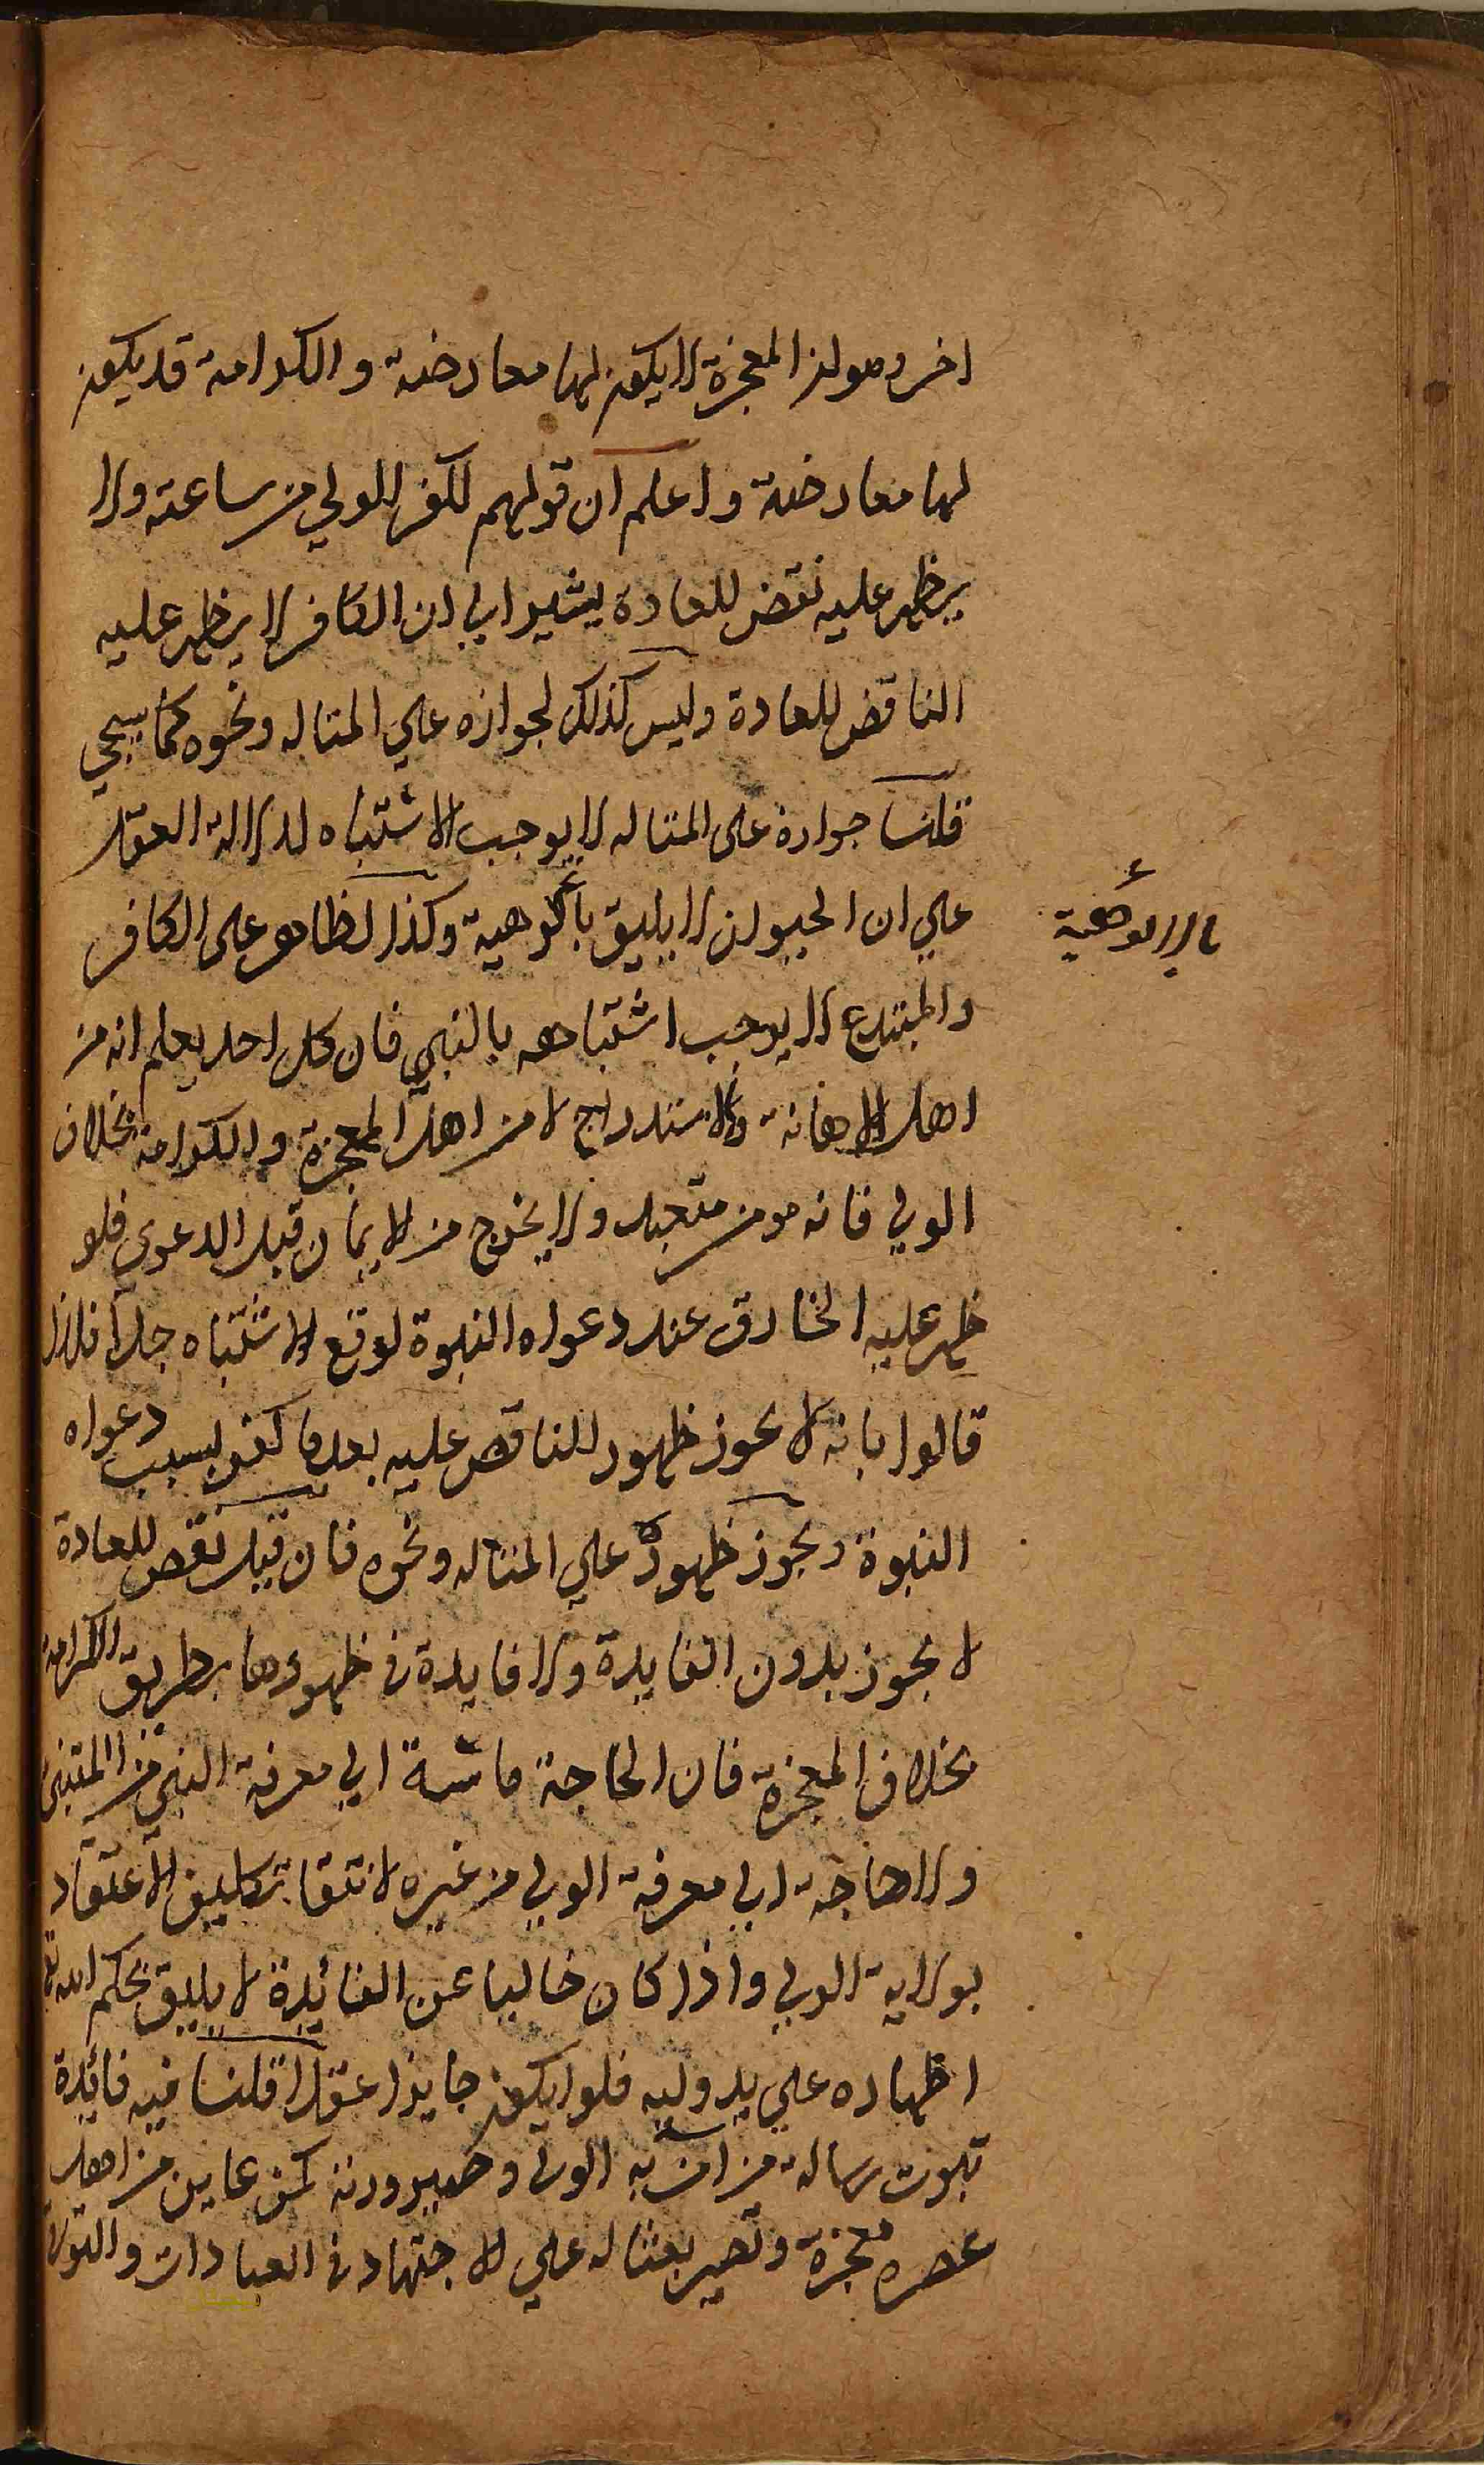 اخر وهو ان المعجزة لا يكون لها معارضة والكرامة قد يكون
لها معارضة واعلم ان قولهم لكفر الولي من ساعته ولا
يظهر عليه نقض للعادة يشير الي ان الكافر لا يظهر عليه
الناقض للعادة وليس كذلك لجوازه علي المتاله ونحوه كما سيجي
قلنا جوازه على المتاله لا يوجب الاشتباه لدلالة العقل
علي ان الحيوان لا يليق بالوهية وكذا الظاهر على الكافر
بالالوهية
والمبتدع لا يوجب اشتباهه بالنبي فان كل احد يعلم انه من
اهل الاهانة والاستدراج لا من اهل المعجزة والكرامة بخلاف
الولي فانه مومن متعبد ولا يخرج من الايمان قبل الدعوى فلو
ظهر عليه الخارق عند دعواه النبوة لوقع الاشتباه جدا فلذا
قالوا بانه لا يجوز ظهور الناقض عليه بعد ما كفر بسبب دعواه
النبوة ويجوز ظهوره علي المتاله ونحوه فان قيل نقض للعادة
لا يجوز بدون الفايدة ولا فايدة في ظهورها بطريق الكرامة
بخلاف المعجزة فان الحاجة ماسة الي معرفة النبي من المتنبي
ولا حاجة الي معرفة الولي من غيره لانتفا تكليف الاعتقاد
بولاية الولي واذا كان خاليا عن الفائدة لا يليق بحكم الله تعا
اظهاره علي يد وليه فلا يكون جايزا عقلا قلنا فيه فائدة
ثبوت رسالة من امن به الولي وصيرورته كمن عاين من اهل
عصره معجزة وتصير بعثا له علي الاجتهاد في العبادات